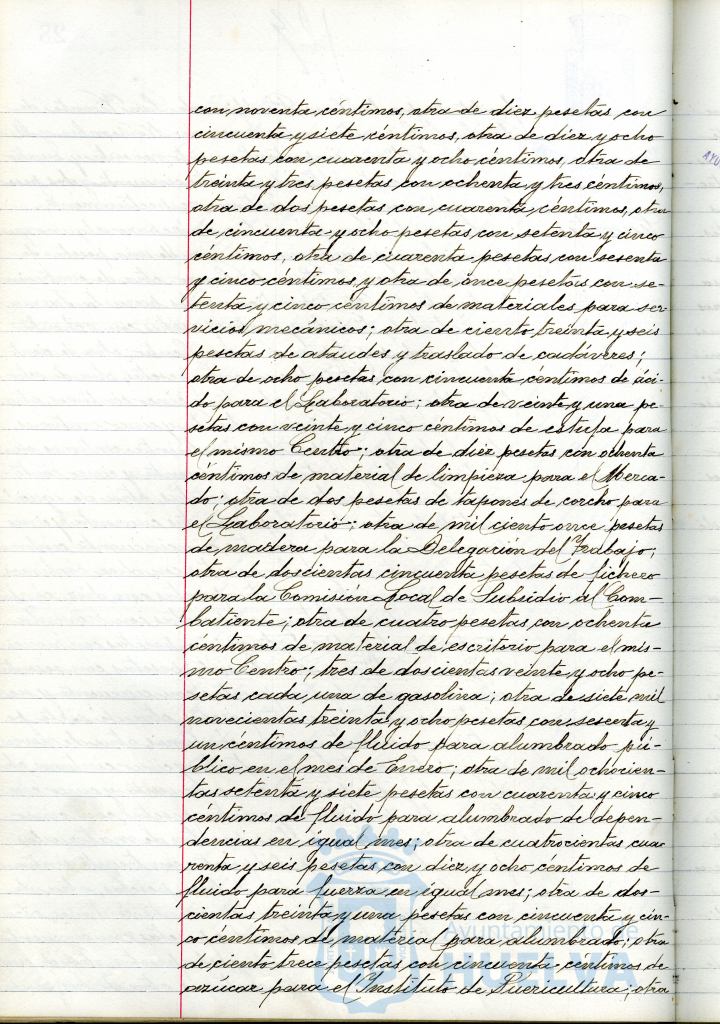 con noventa céntimos, otra de diez pesetas con
cincuenta y siete céntimos, otra de diez y ocho
pesetas con cuarenta y ocho céntimos, otra de
treinta y tres pesetas con ochenta y tres céntimos,
otra de dos pesetas con cuarenta céntimos, otra
de cincuenta y ocho pesetas con setenta y cinco
céntimos, otra de cuarenta pesetas con sesenta
y cinco céntimos y otra de once pesetas con se-
tenta y cinco céntimos de materiales para ser-
vicios mecánicos; otra de ciento treinta y seis
pesetas de ataudes y traslado de cadáveres;
otra de ocho pesetas con cincuenta céntimos de áci-
do para el Laboratorio; otra de veinte y una pe-
setas con veinte y cinco céntimos de estufa para
el mismo Centro; otra de diez pesetas con ochenta
céntimos de material de limpieza para el Merca-
do; otra de dos pesetas de tapones de corcho para
el Laboratorio; otra de mil ciento once pesetas
de madera para la Delegación del Trabajo;
otra de doscientas cincuenta pesetas de fichero
para la Comisión Local de Subsidio al Com-
batiente; otra de cuatro pesetas con ochenta
céntimos de material de escritorio para el mis-
mo Centro; tres de doscientas veinte y ocho pe-
setas cada una de gasolina; otra de siete mil
novecientas treinta y ocho pesetas con sesenta y
un céntimos de fluido para alumbrado pú-
blico en el mes de Enero; otra de mil ochocien-
tas setenta y siete pesetas con cuarenta y cinco
céntimos de fluido para alumbrado de depen-
dencias en igual mes; otra de cuatrocientas cua-
renta y seis pesetas con diez y ocho céntimos de
fluido para fuerza en igual mes; otra de dos-
cientas treinta y una pesetas con cincuenta y cin-
co céntimos de material para alumbrado; otra
de ciento trece pesetas con cincuenta céntimos de
azúcar para el Instituto de Puericultura; otra
Ayuntamiento de
HUELVA